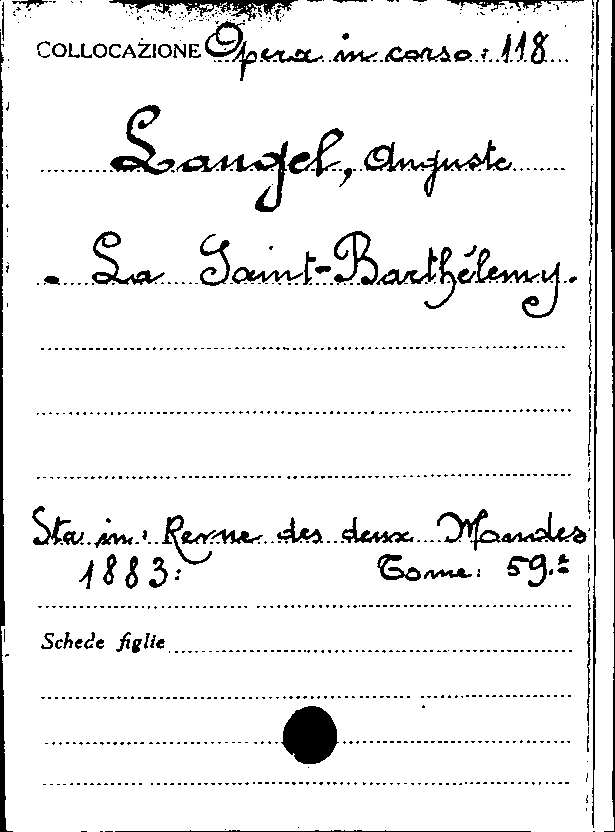 COLLOCAZIONE Opera in corso: 118
Laugel, Auguste
- La Saint-Barthélemy.
Sta in: Revue des deux Mondes
1883: Tome: 59.e
Schede figlie